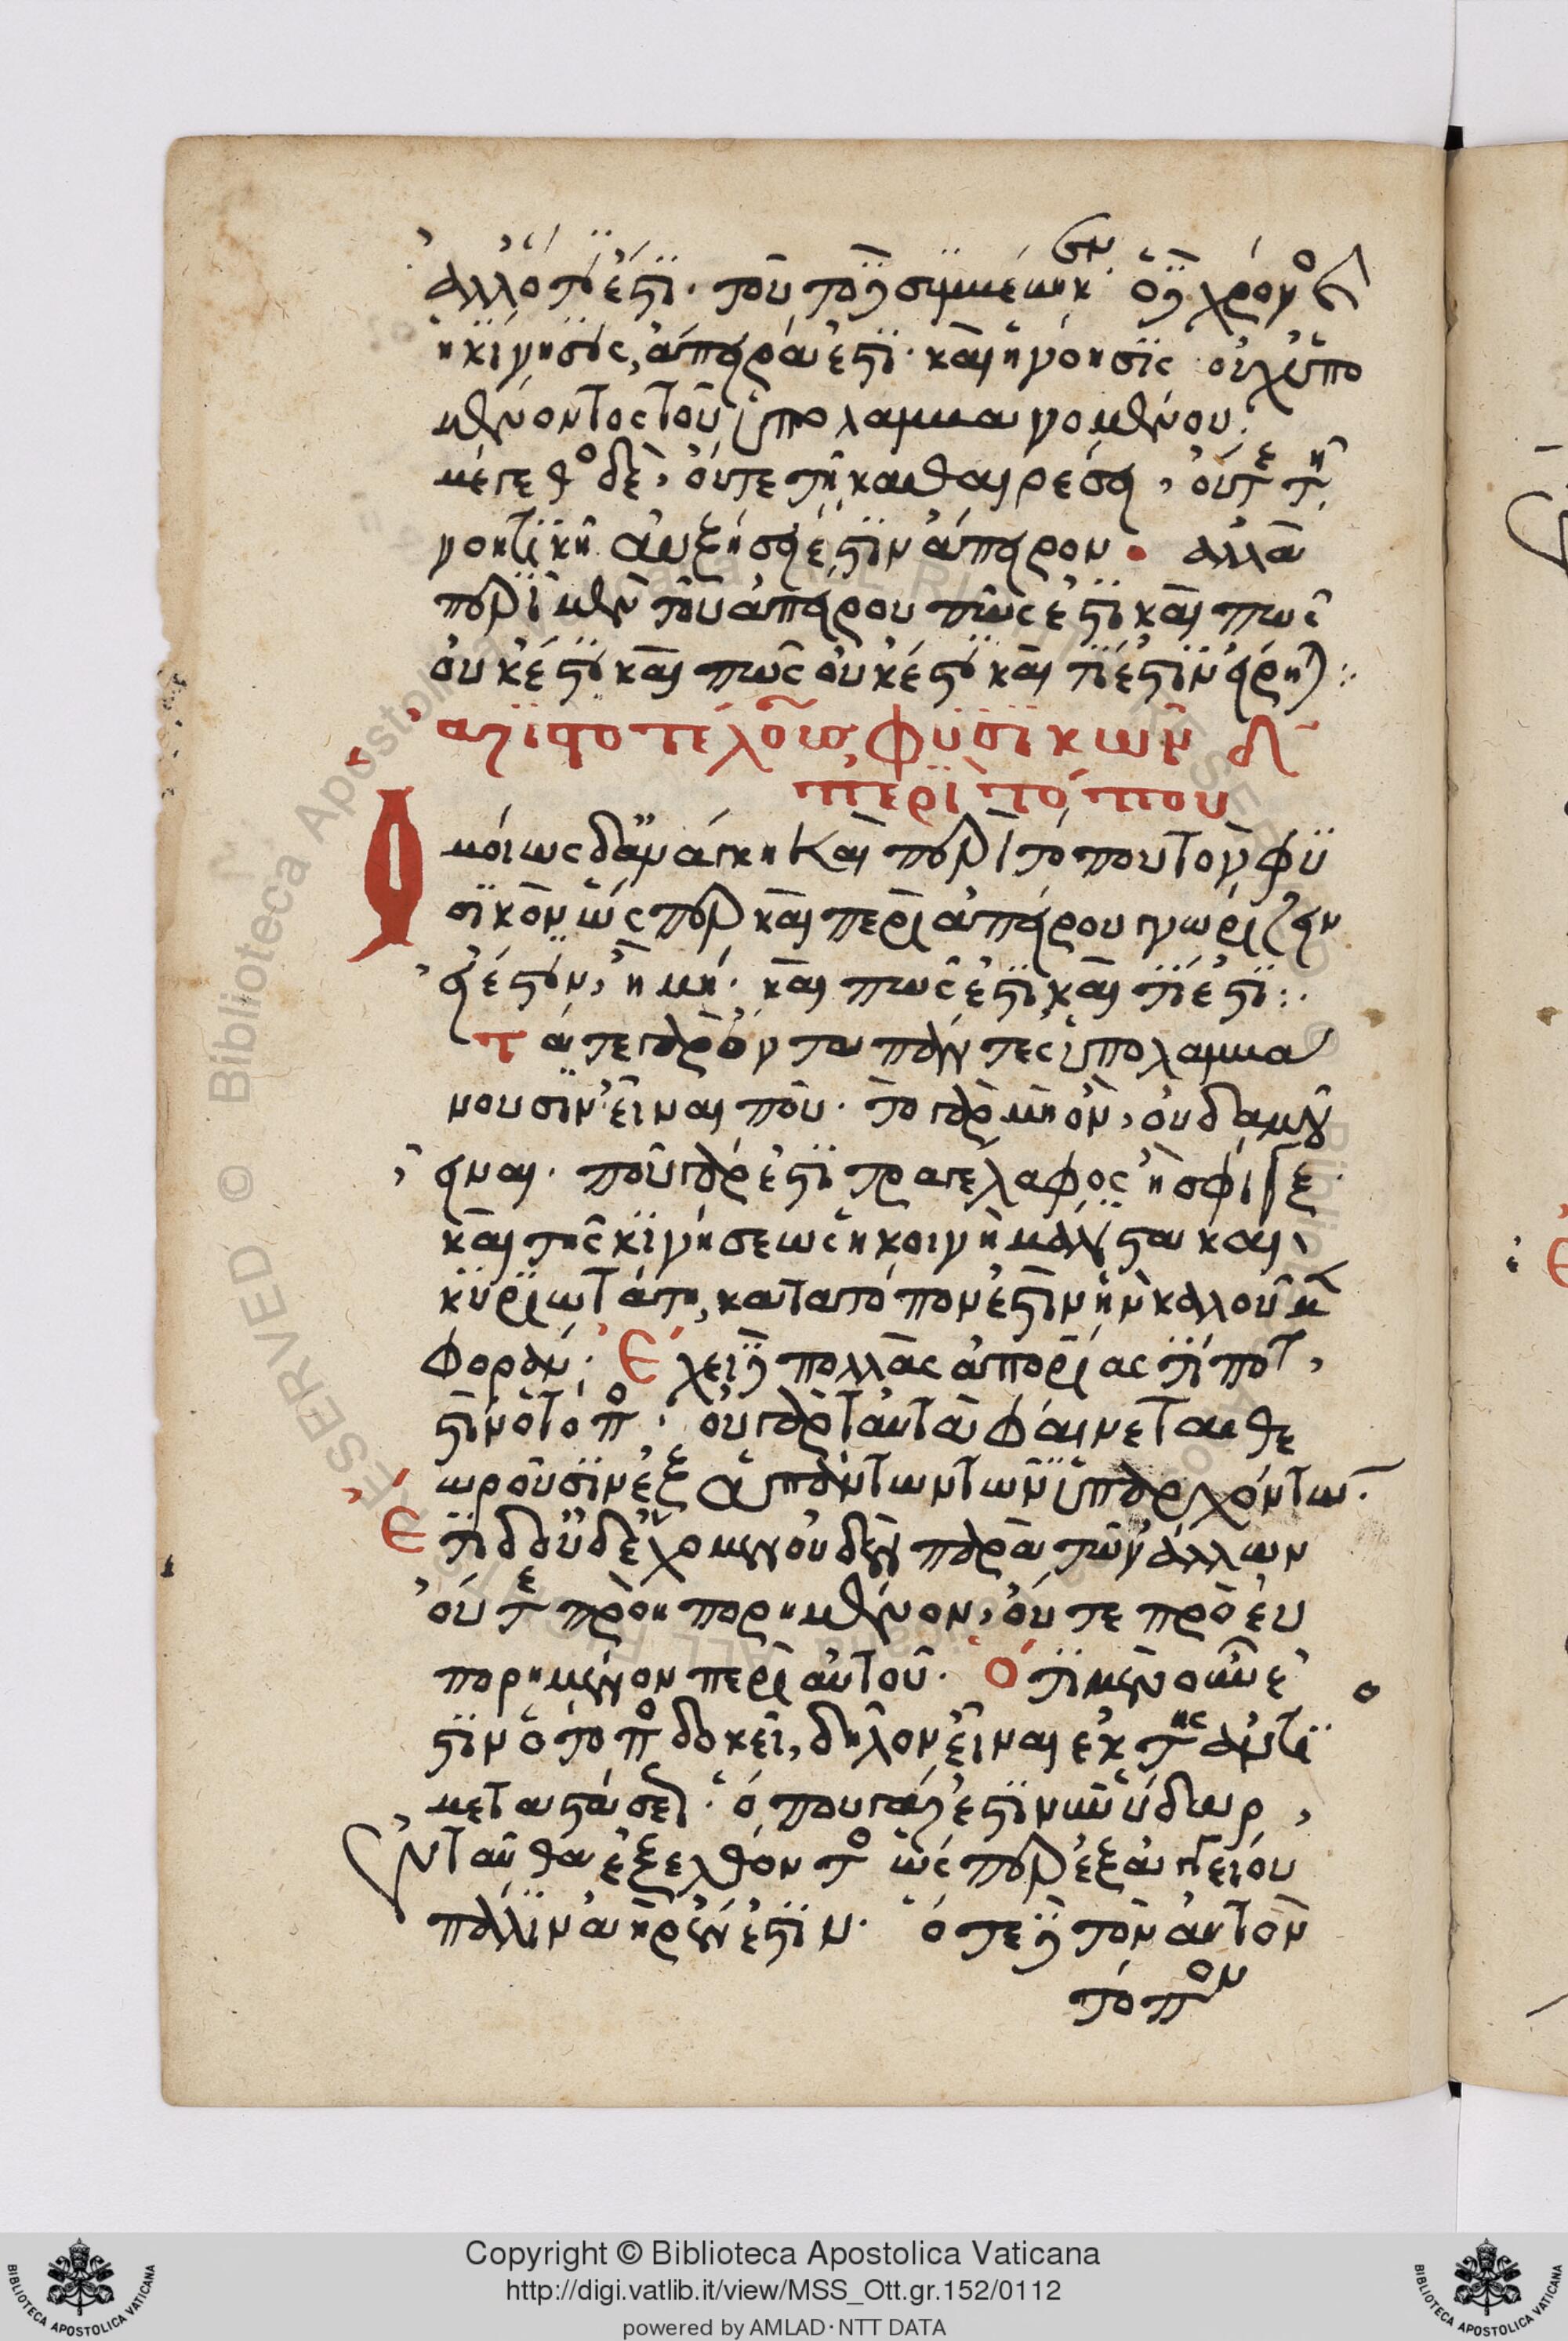 ἀλλ' ὅτι ἔστι. τοῦτο δὲ συμβέβηκεν. ὁ δὲ χρόνος καὶ
ἡ κίνησις, ἄπειρά ἐστι. καὶ ἡ νόησις οὐχ ὑπο
μένοντος τοῦ ὑπολαμβανομένου.
μέγεθος δὲ, οὔτε τῇ καθαιρέσει, οὔτε τῇ
νοητικῇ αὐξήσει ἐστὶν ἄπειρον. ἀλλὰ
περὶ μὲν τοῦ ἀπείρου πῶς ἔστι καὶ πῶς
οὐκ ἔστι καὶ πῶς οὐκ ἔστι καὶ τί ἐστὶν εἴρηται:
ἀριστοτέλους φυσικῶν δ
περὶ τόπου
Ὁμοίως δ' ἀνάγκη καὶ περὶ τόπου τὸν φυ
σικὸν ὥσπερ καὶ περὶ ἀπείρου γνωρίζειν
εἰ ἔστιν, ἢ μή. καὶ πῶς ἔστι καὶ τί ἐστι:.
τά τε γὰρ ὄντα πάντες ὑπολαμβά
νουσιν εἶναι που. τὸ γὰρ μὴ ὂν, οὐδαμοῦ
εἶναι. ποῦ γάρ ἐστι τραγέλαφος ἢ σφίγξ.
καὶ τῆς κινήσεως ἡ κοινὴ μάλιστα καὶ
κυριωτάτη, κατὰ τόπον ἐστὶν ἣν καλοῦμεν
φοράν. Ἔχει δὲ πολλὰς ἀπορίας τί ποτ' ἐ
στὶν ὁ τόπος. οὐ γὰρ ταὐτὰ φαίνεται θε
ωροῦσιν ἐξ ἁπάντων τῶν ὑπαρχόντων.
Ἔτι δ' οὐδ' ἔχομεν οὐδὲν παρὰ τῶν ἄλλων
οὔτε προηπορημένον, οὔτε προευ
πορημένον περὶ αὐτοῦ. Ὅτι μὲν οὖν ἔ
στιν ὁ τόπος δοκεῖ, δῆλον εἶναι ἐκ τῆς ἀντι
μεταστάσεως. ὅπου γάρ ἐστὶν νῦν ὕδωρ,
ἐνταῦθα ἐξελθόντος ὥσπερ ἐξ ἀγγείου
πάλιν ἀὴρ ἔνεστιν. ὅτε δὲ τὸν αὐτὸν
τόπον
Copyright © Biblioteca Apostolica Vaticana
http://digi.vatlib.it/view/MSS_Ott.gr.152/0112
powered by AMLAD·NTT DATA